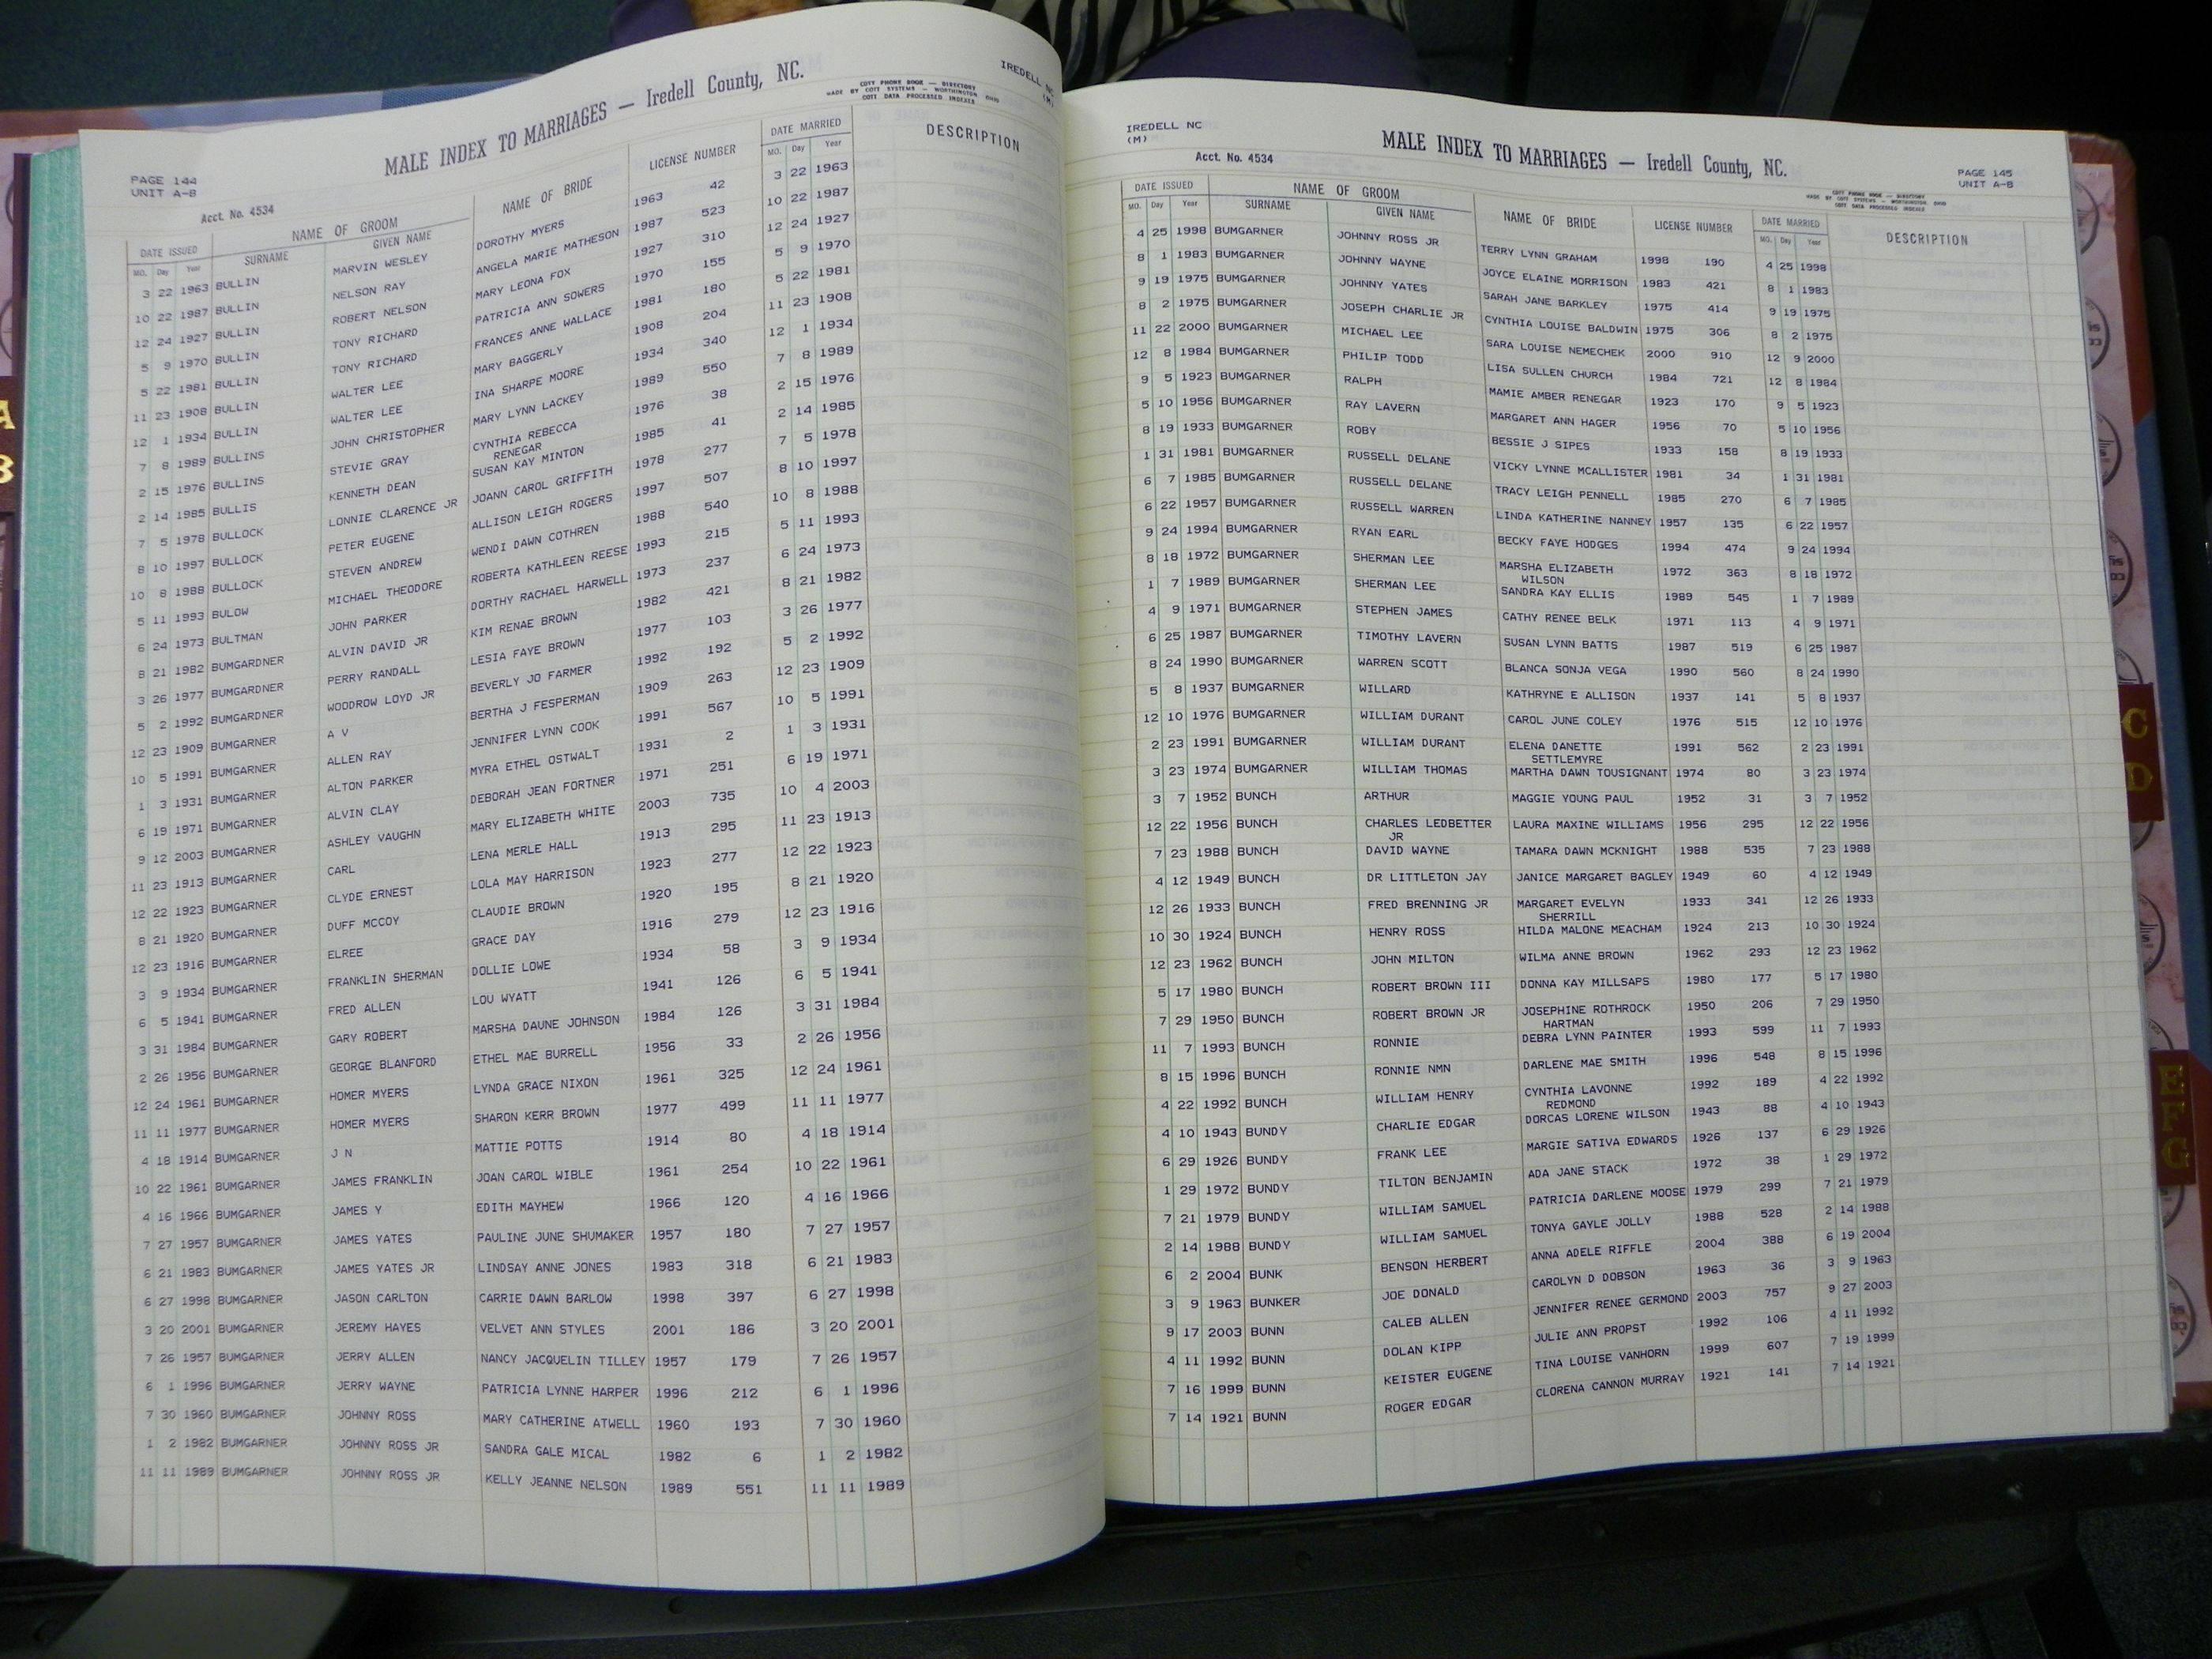 MALE INDEX TO MARRIAGES — Iredell County, NC.
COTT PHONE BOOK — DIRECTORY
MADE BY COTT SYSTEMS — WORTHINGTON OHIO
COTT DATA PROCESSED INDEXES
IREDELL NC
(M)
PAGE 144
UNIT A-B
Acct. No. 4534
DATE ISSUED NAME OF GROOM NAME OF BRIDE LICENSE NUMBER DATE MARRIED DESCRIPTION
MO. Day Year SURNAME GIVEN NAME MO. Day Year
3 22 1963 BULLIN MARVIN WESLEY DOROTHY MYERS 1963 42 3 22 1963
10 22 1987 BULLIN NELSON RAY ANGELA MARIE MATHESON 1987 523 10 22 1987
12 24 1927 BULLIN ROBERT NELSON MARY LEONA FOX 1927 310 12 24 1927
5 9 1970 BULLIN TONY RICHARD PATRICIA ANN SOWERS 1970 155 5 9 1970
5 22 1981 BULLIN TONY RICHARD FRANCES ANNE WALLACE 1981 180 5 22 1981
11 23 1908 BULLIN WALTER LEE MARY BAGGERLY 1908 204 11 23 1908
12 1 1934 BULLIN WALTER LEE INA SHARPE MOORE 1934 340 12 1 1934
7 8 1989 BULLINS JOHN CHRISTOPHER MARY LYNN LACKEY 1989 550 7 8 1989
2 15 1976 BULLINS STEVIE GRAY CYNTHIA REBECCA 1976 38 2 15 1976
RENEGAR
2 14 1985 BULLIS KENNETH DEAN SUSAN KAY MINTON 1985 41 2 14 1985
7 5 1978 BULLOCK LONNIE CLARENCE JR JOANN CAROL GRIFFITH 1978 277 7 5 1978
8 10 1997 BULLOCK PETER EUGENE ALLISON LEIGH ROGERS 1997 507 8 10 1997
10 8 1988 BULLOCK STEVEN ANDREW WENDI DAWN COTHREN 1988 540 10 8 1988
5 11 1993 BULOW MICHAEL THEODORE ROBERTA KATHLEEN REESE 1993 215 5 11 1993
6 24 1973 BULTMAN JOHN PARKER DORTHY RACHAEL HARWELL 1973 237 6 24 1973
8 21 1982 BUMGARDNER ALVIN DAVID JR KIM RENAE BROWN 1982 421 8 21 1982
3 26 1977 BUMGARDNER PERRY RANDALL LESIA FAYE BROWN 1977 103 3 26 1977
5 2 1992 BUMGARDNER WOODROW LOYD JR BEVERLY JO FARMER 1992 192 5 2 1992
12 23 1909 BUMGARNER A V BERTHA J FESPERMAN 1909 263 12 23 1909
10 5 1991 BUMGARNER ALLEN RAY JENNIFER LYNN COOK 1991 567 10 5 1991
1 3 1931 BUMGARNER ALTON PARKER MYRA ETHEL OSTWALT 1931 2 1 3 1931
6 19 1971 BUMGARNER ALVIN CLAY DEBORAH JEAN FORTNER 1971 251 6 19 1971
9 12 2003 BUMGARNER ASHLEY VAUGHN MARY ELIZABETH WHITE 2003 735 10 4 2003
11 23 1913 BUMGARNER CARL LENA MERLE HALL 1913 295 11 23 1913
12 22 1923 BUMGARNER CLYDE ERNEST LOLA MAY HARRISON 1923 277 12 22 1923
8 21 1920 BUMGARNER DUFF MCCOY CLAUDIE BROWN 1920 195 8 21 1920
12 23 1916 BUMGARNER ELREE GRACE DAY 1916 279 12 23 1916
3 9 1934 BUMGARNER FRANKLIN SHERMAN DOLLIE LOWE 1934 58 3 9 1934
6 5 1941 BUMGARNER FRED ALLEN LOU WYATT 1941 126 6 5 1941
3 31 1984 BUMGARNER GARY ROBERT MARSHA DAUNE JOHNSON 1984 126 3 31 1984
2 26 1956 BUMGARNER GEORGE BLANFORD ETHEL MAE BURRELL 1956 33 2 26 1956
12 24 1961 BUMGARNER HOMER MYERS LYNDA GRACE NIXON 1961 325 12 24 1961
11 11 1977 BUMGARNER HOMER MYERS SHARON KERR BROWN 1977 499 11 11 1977
4 18 1914 BUMGARNER J N MATTIE POTTS 1914 80 4 18 1914
10 22 1961 BUMGARNER JAMES FRANKLIN JOAN CAROL WIBLE 1961 254 10 22 1961
4 16 1966 BUMGARNER JAMES Y EDITH MAYHEW 1966 120 4 16 1966
7 27 1957 BUMGARNER JAMES YATES PAULINE JUNE SHUMAKER 1957 180 7 27 1957
6 21 1983 BUMGARNER JAMES YATES JR LINDSAY ANNE JONES 1983 318 6 21 1983
6 27 1998 BUMGARNER JASON CARLTON CARRIE DAWN BARLOW 1998 397 6 27 1998
3 20 2001 BUMGARNER JEREMY HAYES VELVET ANN STYLES 2001 186 3 20 2001
7 26 1957 BUMGARNER JERRY ALLEN NANCY JACQUELIN TILLEY 1957 179 7 26 1957
6 1 1996 BUMGARNER JERRY WAYNE PATRICIA LYNNE HARPER 1996 212 6 1 1996
7 30 1960 BUMGARNER JOHNNY ROSS MARY CATHERINE ATWELL 1960 193 7 30 1960
1 2 1982 BUMGARNER JOHNNY ROSS JR SANDRA GALE MICAL 1982 6 1 2 1982
11 11 1989 BUMGARNER JOHNNY ROSS JR KELLY JEANNE NELSON 1989 551 11 11 1989
IREDELL NC
(M)
MALE INDEX TO MARRIAGES — Iredell County, NC.
Acct. No. 4534
PAGE 145
UNIT A-B
COTT PHONE BOOK — DIRECTORY
MADE BY COTT SYSTEMS — WORTHINGTON OHIO
COTT DATA PROCESSED INDEXES
DATE ISSUED NAME OF GROOM NAME OF BRIDE LICENSE NUMBER DATE MARRIED DESCRIPTION
MO. Day Year SURNAME GIVEN NAME MO. Day Year
4 25 1998 BUMGARNER JOHNNY ROSS JR TERRY LYNN GRAHAM 1998 190 4 25 1998
8 1 1983 BUMGARNER JOHNNY WAYNE JOYCE ELAINE MORRISON 1983 421 8 1 1983
9 19 1975 BUMGARNER JOHNNY YATES SARAH JANE BARKLEY 1975 414 9 19 1975
8 2 1975 BUMGARNER JOSEPH CHARLIE JR CYNTHIA LOUISE BALDWIN 1975 306 8 2 1975
11 22 2000 BUMGARNER MICHAEL LEE SARA LOUISE NEMECHEK 2000 910 12 9 2000
12 8 1984 BUMGARNER PHILIP TODD LISA SULLEN CHURCH 1984 721 12 8 1984
9 5 1923 BUMGARNER RALPH MAMIE AMBER RENEGAR 1923 170 9 5 1923
5 10 1956 BUMGARNER RAY LAVERN MARGARET ANN HAGER 1956 70 5 10 1956
8 19 1933 BUMGARNER ROBY BESSIE J SIPES 1933 158 8 19 1933
1 31 1981 BUMGARNER RUSSELL DELANE VICKY LYNNE MCALLISTER 1981 34 1 31 1981
6 7 1985 BUMGARNER RUSSELL DELANE TRACY LEIGH PENNELL 1985 270 6 7 1985
6 22 1957 BUMGARNER RUSSELL WARREN LINDA KATHERINE NANNEY 1957 135 6 22 1957
9 24 1994 BUMGARNER RYAN EARL BECKY FAYE HODGES 1994 474 9 24 1994
8 18 1972 BUMGARNER SHERMAN LEE MARSHA ELIZABETH 1972 363 8 18 1972
WILSON
1 7 1989 BUMGARNER SHERMAN LEE SANDRA KAY ELLIS 1989 545 1 7 1989
4 9 1971 BUMGARNER STEPHEN JAMES CATHY RENEE BELK 1971 113 4 9 1971
6 25 1987 BUMGARNER TIMOTHY LAVERN SUSAN LYNN BATTS 1987 519 6 25 1987
8 24 1990 BUMGARNER WARREN SCOTT BLANCA SONJA VEGA 1990 560 8 24 1990
5 8 1937 BUMGARNER WILLARD KATHRYNE E ALLISON 1937 141 5 8 1937
12 10 1976 BUMGARNER WILLIAM DURANT CAROL JUNE COLEY 1976 515 12 10 1976
2 23 1991 BUMGARNER WILLIAM DURANT ELENA DANETTE 1991 562 2 23 1991
SETTLEMYRE
3 23 1974 BUMGARNER WILLIAM THOMAS MARTHA DAWN TOUSIGNANT 1974 80 3 23 1974
3 7 1952 BUNCH ARTHUR MAGGIE YOUNG PAUL 1952 31 3 7 1952
12 22 1956 BUNCH CHARLES LEDBETTER LAURA MAXINE WILLIAMS 1956 295 12 22 1956
JR
7 23 1988 BUNCH DAVID WAYNE TAMARA DAWN MCKNIGHT 1988 535 7 23 1988
4 12 1949 BUNCH DR LITTLETON JAY JANICE MARGARET BAGLEY 1949 60 4 12 1949
12 26 1933 BUNCH FRED BRENNING JR MARGARET EVELYN 1933 341 12 26 1933
SHERRILL
10 30 1924 BUNCH HENRY ROSS HILDA MALONE MEACHAM 1924 213 10 30 1924
12 23 1962 BUNCH JOHN MILTON WILMA ANNE BROWN 1962 293 12 23 1962
5 17 1980 BUNCH ROBERT BROWN III DONNA KAY MILLSAPS 1980 177 5 17 1980
7 29 1950 BUNCH ROBERT BROWN JR JOSEPHINE ROTHROCK 1950 206 7 29 1950
HARTMAN
11 7 1993 BUNCH RONNIE DEBRA LYNN PAINTER 1993 599 11 7 1993
8 15 1996 BUNCH RONNIE NMN DARLENE MAE SMITH 1996 548 8 15 1996
4 22 1992 BUNCH WILLIAM HENRY CYNTHIA LAVONNE 1992 189 4 22 1992
REDMOND
4 10 1943 BUNDY CHARLIE EDGAR DORCAS LORENE WILSON 1943 88 4 10 1943
6 29 1926 BUNDY FRANK LEE MARGIE SATIVA EDWARDS 1926 137 6 29 1926
1 29 1972 BUNDY TILTON BENJAMIN ADA JANE STACK 1972 38 1 29 1972
7 21 1979 BUNDY WILLIAM SAMUEL PATRICIA DARLENE MOOSE 1979 299 7 21 1979
2 14 1988 BUNDY WILLIAM SAMUEL TONYA GAYLE JOLLY 1988 528 2 14 1988
6 2 2004 BUNK BENSON HERBERT ANNA ADELE RIFFLE 2004 388 6 19 2004
3 9 1963 BUNKER JOE DONALD CAROLYN D DOBSON 1963 36 3 9 1963
9 17 2003 BUNN CALEB ALLEN JENNIFER RENEE GERMOND 2003 757 9 27 2003
4 11 1992 BUNN DOLAN KIPP JULIE ANN PROPST 1992 106 4 11 1992
7 16 1999 BUNN KEISTER EUGENE TINA LOUISE VANHORN 1999 607 7 19 1999
7 14 1921 BUNN ROGER EDGAR CLORENA CANNON MURRAY 1921 141 7 14 1921
A
B
C
D
E
F
G